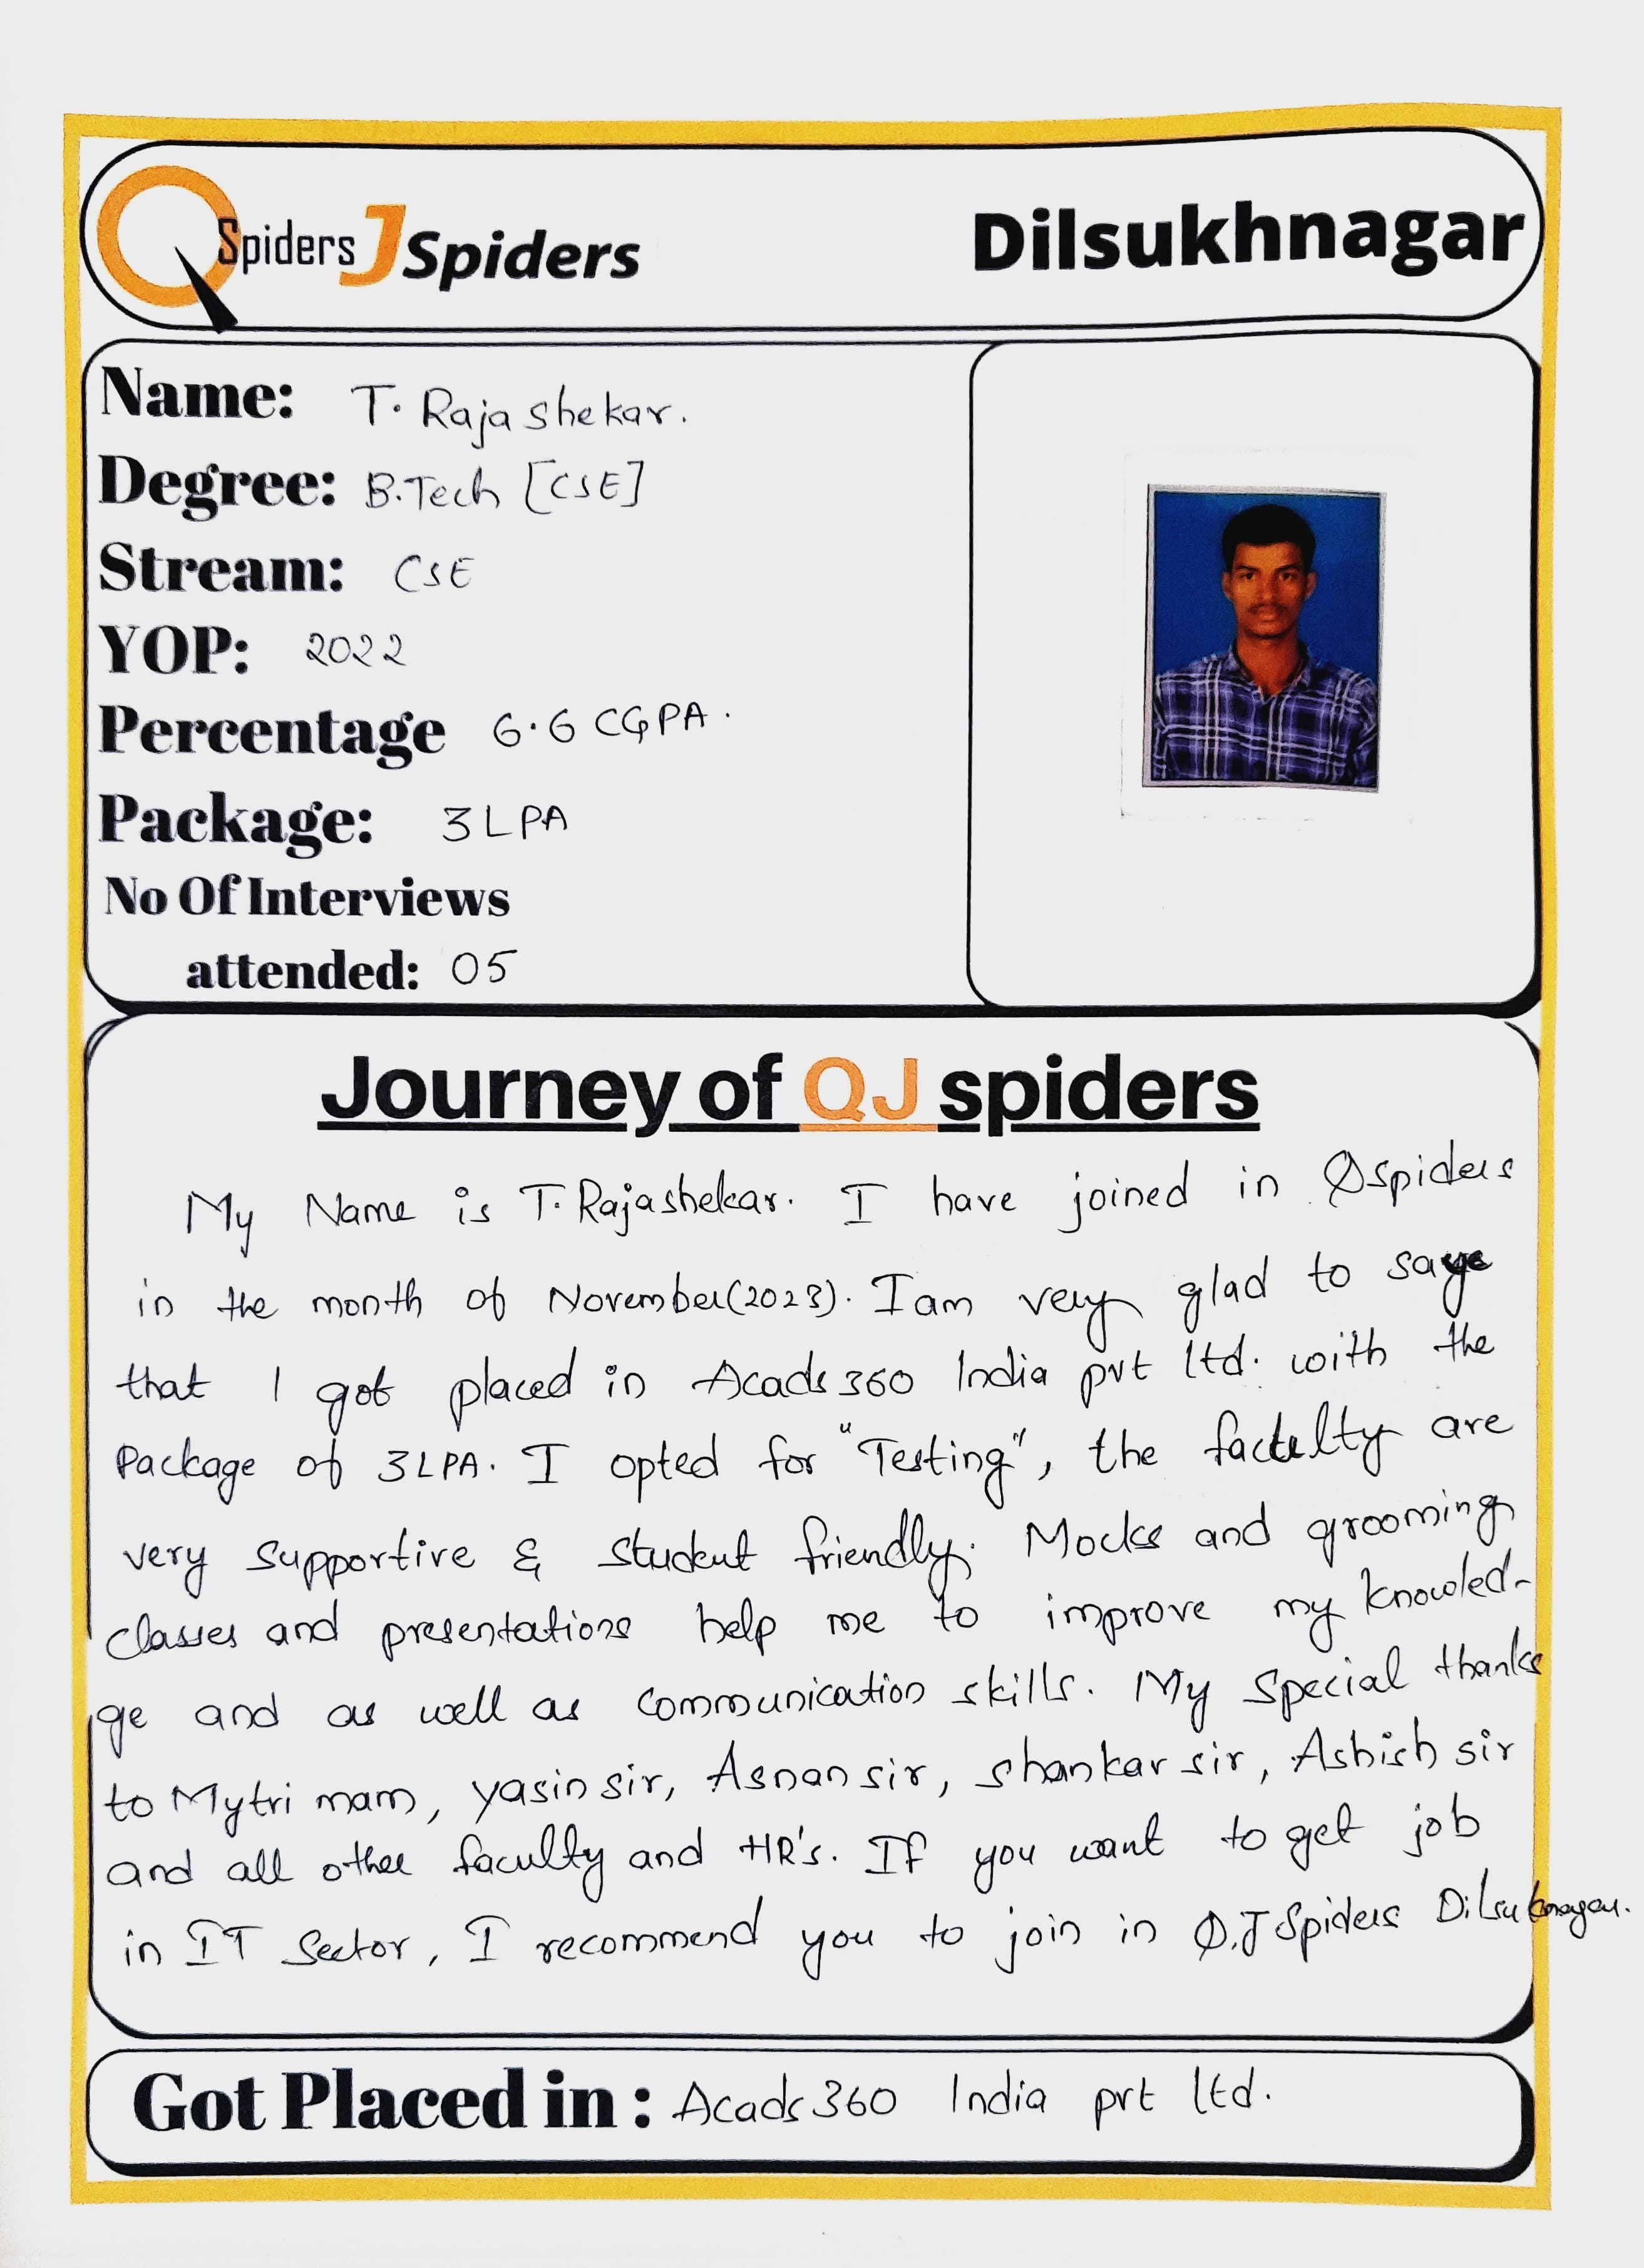 QSpiders JSpiders Dilsukhnagar
Name: T. Rajashekar.
Degree: B.Tech [CSE]
Stream: CSE
YOP: 2022
Percentage 6.6 CGPA.
Package: 3LPA
No Of Interviews
attended: 05
Journey of QJ spiders
My Name is T. Rajashekar. I have joined in Qspiders
in the month of November(2023). I am very glad to say
that I got placed in Acads360 India pvt ltd. with the
Package of 3LPA. I opted for "Testing", the faculty are
very supportive & student friendly. Mocks and grooming
classes and presentations help me to improve my knowled-
ge and as well as communication skills. My Special thanks
to Mytri mam, yasin sir, Asnan sir, shankar sir, Ashish sir
and all other faculty and HR's. If you want to get job
in IT Sector, I recommend you to join in Q.J Spiders Dilsuknagar.
Got Placed in : Acads360 India pvt ltd.